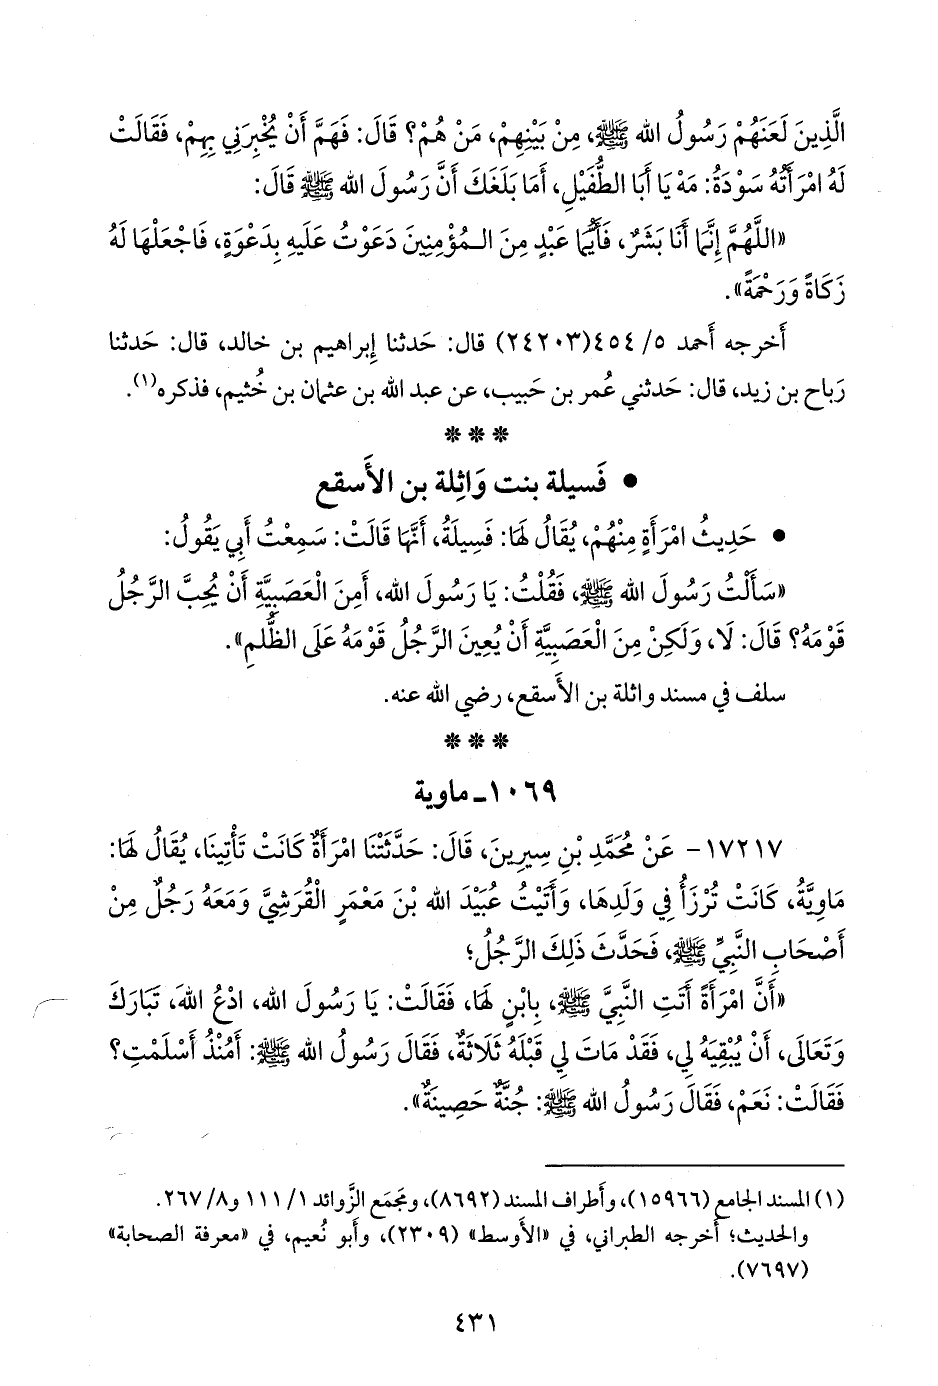 الَّذِينَ لَعَنَهُمْ رَسُولُ الله ﷺ، مِنْ بَيْنِهِمْ، مَنْ هُمْ؟ قَالَ: فَهَمَّ أَنْ يُخْبِرَنِي بِهِمْ، فَقَالَتْ
لَهُ امْرَأَتُهُ سَوْدَةُ: مَهْ يَا أَبَا الطُّفَيْلِ، أَمَا بَلَغَكَ أَنَّ رَسُولَ الله ﷺ قَالَ:
«اللَّهُمَّ إِنَّمَا أَنَا بَشَرٌ، فَأَيُّمَا عَبْدٍ مِنَ الـمُؤْمِنِينَ دَعَوْتُ عَلَيهِ بِدَعْوَةٍ، فَاجْعَلْهَا لَهُ
زَكَاةً وَرَحْمَةً».
أَخرجه أَحمد ٥/ ٤٥٤(٢٤٢٠٣) قال: حَدثنا إِبراهيم بن خالد، قال: حَدثنا
رَباح بن زيد، قال: حَدثني عُمر بن حَبيب، عن عبد الله بن عثمان بن خُثيم، فذكره(١).
*** 
• فَسيلة بنت وَاثِلة بن الأَسقع
• حَدِيثُ امْرَأَةٍ مِنْهُمْ، يُقَالُ لَهَا: فَسِيلَةُ، أَنَّهَا قَالَتْ: سَمِعْتُ أَبِي يَقُولُ:
«سَأَلْتُ رَسُولَ الله ﷺ، فَقُلْتُ: يَا رَسُولَ الله، أَمِنَ الْعَصَبِيَّةِ أَنْ يُحِبَّ الرَّجُلُ
قَوْمَهُ؟ قَالَ: لَا، وَلَكِنْ مِنَ الْعَصَبِيَّةِ أَنْ يُعِينَ الرَّجُلُ قَوْمَهُ عَلَى الظُّلمِ».
سلف في مسند واثلة بن الأَسقع، رضي الله عنه.
***
١٠٦٩ـ ماوية
١٧٢١٧- عَنْ مُحَمَّدِ بْنِ سِيرِينَ، قَالَ: حَدَّثَتْنَا امْرَأَةٌ كَانَتْ تَأْتِينَا، يُقَالُ لَهَا:
مَاوِيَّةُ، كَانَتْ تُرْزَأُ فِي وَلَدِهَا، وَأَتَيْتُ عُبَيْدَ الله بْنَ مَعْمَرٍ الْقُرَشِيَّ وَمَعَهُ رَجُلٌ مِنْ
أَصْحَابِ النَّبِيِّ ﷺ، فَحَدَّثَ ذَلِكَ الرَّجُلُ؛
«أَنَّ امْرَأَةً أَتَتِ النَّبِيَّ ﷺ، بِابْنٍ لَهَا، فَقَالَتْ: يَا رَسُولَ الله، ادْعُ اللهَ، تَبَارَكَ
وَتَعَالَى، أَنْ يُبْقِيَهُ لِي، فَقَدْ مَاتَ لِي قَبْلَهُ ثَلَاثَةٌ، فَقَالَ رَسُولُ الله ﷺ: أَمُنْذُ أَسْلَمْتِ؟
فَقَالَتْ: نَعَمْ، فَقَالَ رَسُولُ الله ﷺ: جُنَّةٌ حَصِينَةٌ».
(١) المسند الجامع (١٥٩٦٦)، وأَطراف المسند (٨٦٩٢)، ومَجمَع الزَّوائد ١/ ١١١ و٨/ ٢٦٧.
والحديث؛ أَخرجه الطبراني، في «الأَوسط» (٢٣٠٩)، وأَبو نُعيم، في «معرفة الصحابة»
(٧٦٩٧).
٤٣١